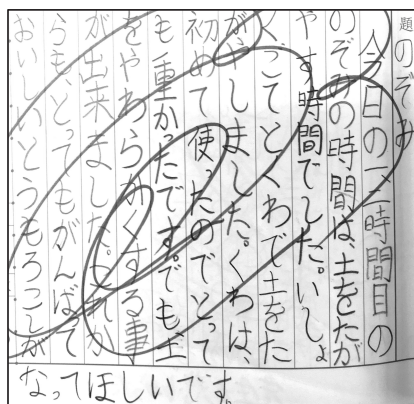 題 のぞみ
今日の二時間目の
のぞみの時間は、土をたが
やす時間でした。いしょ
くってとくわで土をた
がやしました。くわは、
初めて使ったのでとって
も重かったです。でも土
をやわらかくする事
が出来ました。これか
らも、とってもがんばって
おいしいとうもろこしが
なってほしいです。